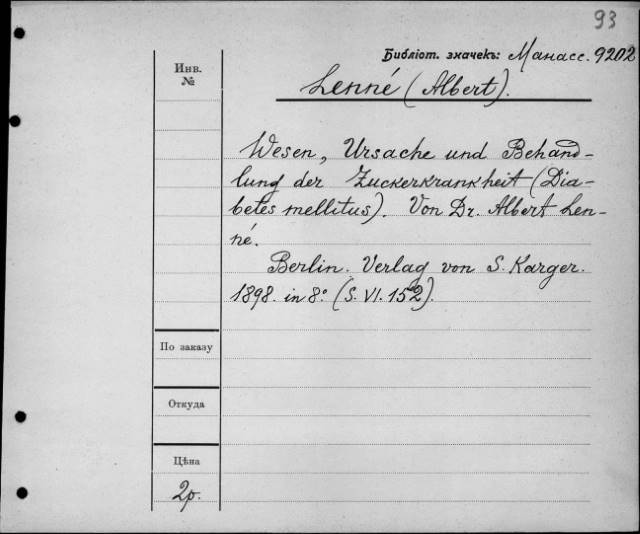 93
Библіот. значекъ: Манасс. 9202
Инв.
№
Lenné (Albert).
Wesen, Ursache und Behand-
lung der Zuckerkrankheit (Dia-
betes mellitus). Von Dr. Albert Len-
né.
Berlin. Verlag von S. Karger.
1898. in 8º. (S. VI. 152).
По заказу
Откуда
Цѣна
2р.